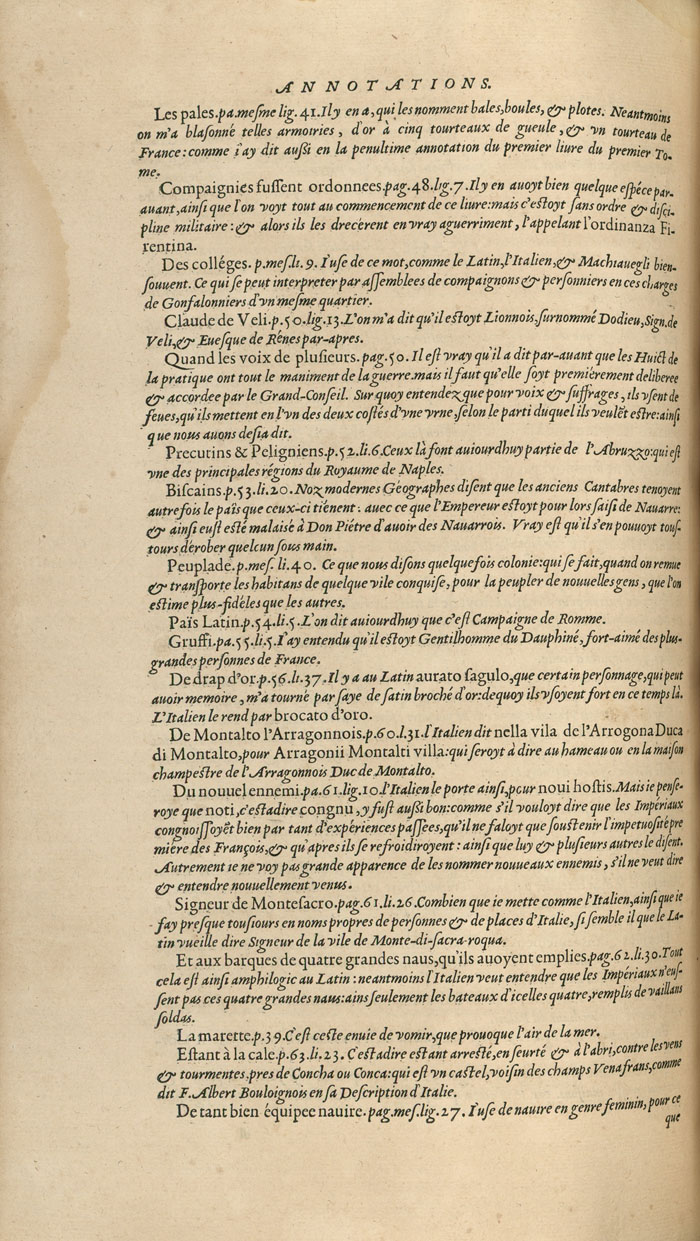 ANNOTATIONS.
Les pales.pa.mesme lig. 41.Ily en a, qui les nomment bales, boules, & plotes. Neantmoins
on m'a blasonné telles armoiries, d'or à cinq tourteaux de gueule, & vn tourteau de
France: comme i'ay dit aussi en la penultime annotation du premier liure du premier To-
me.
Compaignies fussent ordonnees.pag.48.lig.7.Ily en auoyt bien quelque espéce par-
auant, ainsi que l'on voyt tout au commencement de ce liure: mais c'estoyt sans ordre & disci-
pline militaire: & alors ils les drecérent en vray aguerriment, l'appelant l'ordinanza Fi-
rentina.
Des colléges. p.mes.li. 9. I'use de ce mot, comme le Latin, l'Italien, & Machiauegli bien-
souuent. Ce qui se peut interpreter par assemblees de compaignons & personniers en ces charges
de Gonfalonniers d'vn mesme quartier.
Claude de Veli.p.50.lig.13.L'on m'a dit qu'il estoyt Lionnois, surnommé Dodieu, Sign.de
Veli, & Euesque de Rénes par-apres.
Quand les voix de plusieurs.pag.50. Il est vray qu'il a dit par-auant que les Huict de
la pratique ont tout le maniment de la guerre.mais il faut qu'elle soyt premiérement deliberee
& accordee par le Grand-Conseil. Sur quoy entendez que pour voix & suffrages, ils vsent de
feues, qu'ils mettent en l'vn des deux costés d'vne vrne, selon le parti duquel ils veulēt estre: ainsi
que nous auons desia dit.
Precutins & Peligniens.p.52.li.6.Ceux là font auiourdhuy partie de l'Abruzzo: qui est
vne des principales régions du Royaume de Naples.
Biscains.p.53.li.20. Noz modernes Géographes disent que les anciens Cantabres tenoyent
autrefois le païs que ceux-ci tiēnent: auec ce que l'Empereur estoyt pour lors saisi de Nauarre:
& ainsi eust esté malaisé à Don Piétre d'auoir des Nauarrois. Vray est qu'il s'en pouuoyt tous-
tours dérober quelcun sous main.
Peuplade.p.mes. li.40. Ce que nous disons quelquefois colonie: qui se fait, quand on remue
& transporte les habitans de quelque vile conquise, pour la peupler de nouuelles gens, que l'on
estime plus-fidéles que les autres.
Païs Latin.p.54.li.5.L'on dit auiourdhuy que c'est Campaigne de Romme.
Gruffi.pa.55.li.5.I'ay entendu qu'il estoyt Gentilhomme du Dauphiné, fort-aimé des plus-
grandes personnes de France.
De drap d'or.p.56.li.37.Il y a au Latin aurato sagulo, que certain personnage, qui peut
auoir memoire, m'a tourné par saye de satin broché d'or: dequoy ils vsoyent fort en ce temps là.
L'Italien le rend par brocato d'oro.
De Montalto l'Arragonnois.p.60.l.31.l'Italien dit nella vila de l'Arrogona Duca
di Montalto, pour Arragonii Montalti villa: qui seroyt à dire au hameau ou en la maison
champestre de l'Arragonnois Duc de Montalto.
Du nouuel ennemi.pa.61.lig.10.l'Italien le porte ainsi, pour noui hostis. Mais ie pense-
roye que noti, c'estadire congnu, y fust aussi bon: comme s'il vouloyt dire que les Impériaux
congnoissoyēt bien par tant d'expériences passees, qu'il ne faloyt que soustenir l'impetuosité pre
miére des François, & qu'apres ils se refroidiroyent: ainsi que luy & plusieurs autres le disent.
Autrement ie ne voy pas grande apparence de les nommer nouueaux ennemis, s'il ne veut dire
& entendre nouuellement venus.
Signeur de Montesacro.pag.61.li.26.Combien que ie mette comme l'Italien, ainsi que ie
fay presque tousiours en noms propres de personnes & de places d'Italie, si semble il que le La-
tin vueille dire Signeur de la vile de Monte-di-sacra-roqua.
Et aux barques de quatre grandes naus, qu'ils auoyent emplies.pag.62.li.30.Tout
cela est ainsi amphilogic au Latin: neantmoins l'Italien veut entendre que les Impériaux n'eus-
sent pas ces quatre grandes naus: ains seulement les bateaux d'icelles quatre, remplis de vaillans
soldas.
La marette.p.39.C'est ceste enuie de vomir, que prouoque l'air de la mer.
Estant à la cale.p.63.li.23. C'estadire estant arresté, en seurté & à l'abri, contre les vens
& tourmentes.pres de Concha ou Conca: qui est vn castel, voisin des champs Venafrans, comme
dit F.Albert Bouloignois en sa Description d'Italie.
De tant bien équipee nauire.pag.mes.lig.27. I'use de nauire en genre feminin, pour ce
que